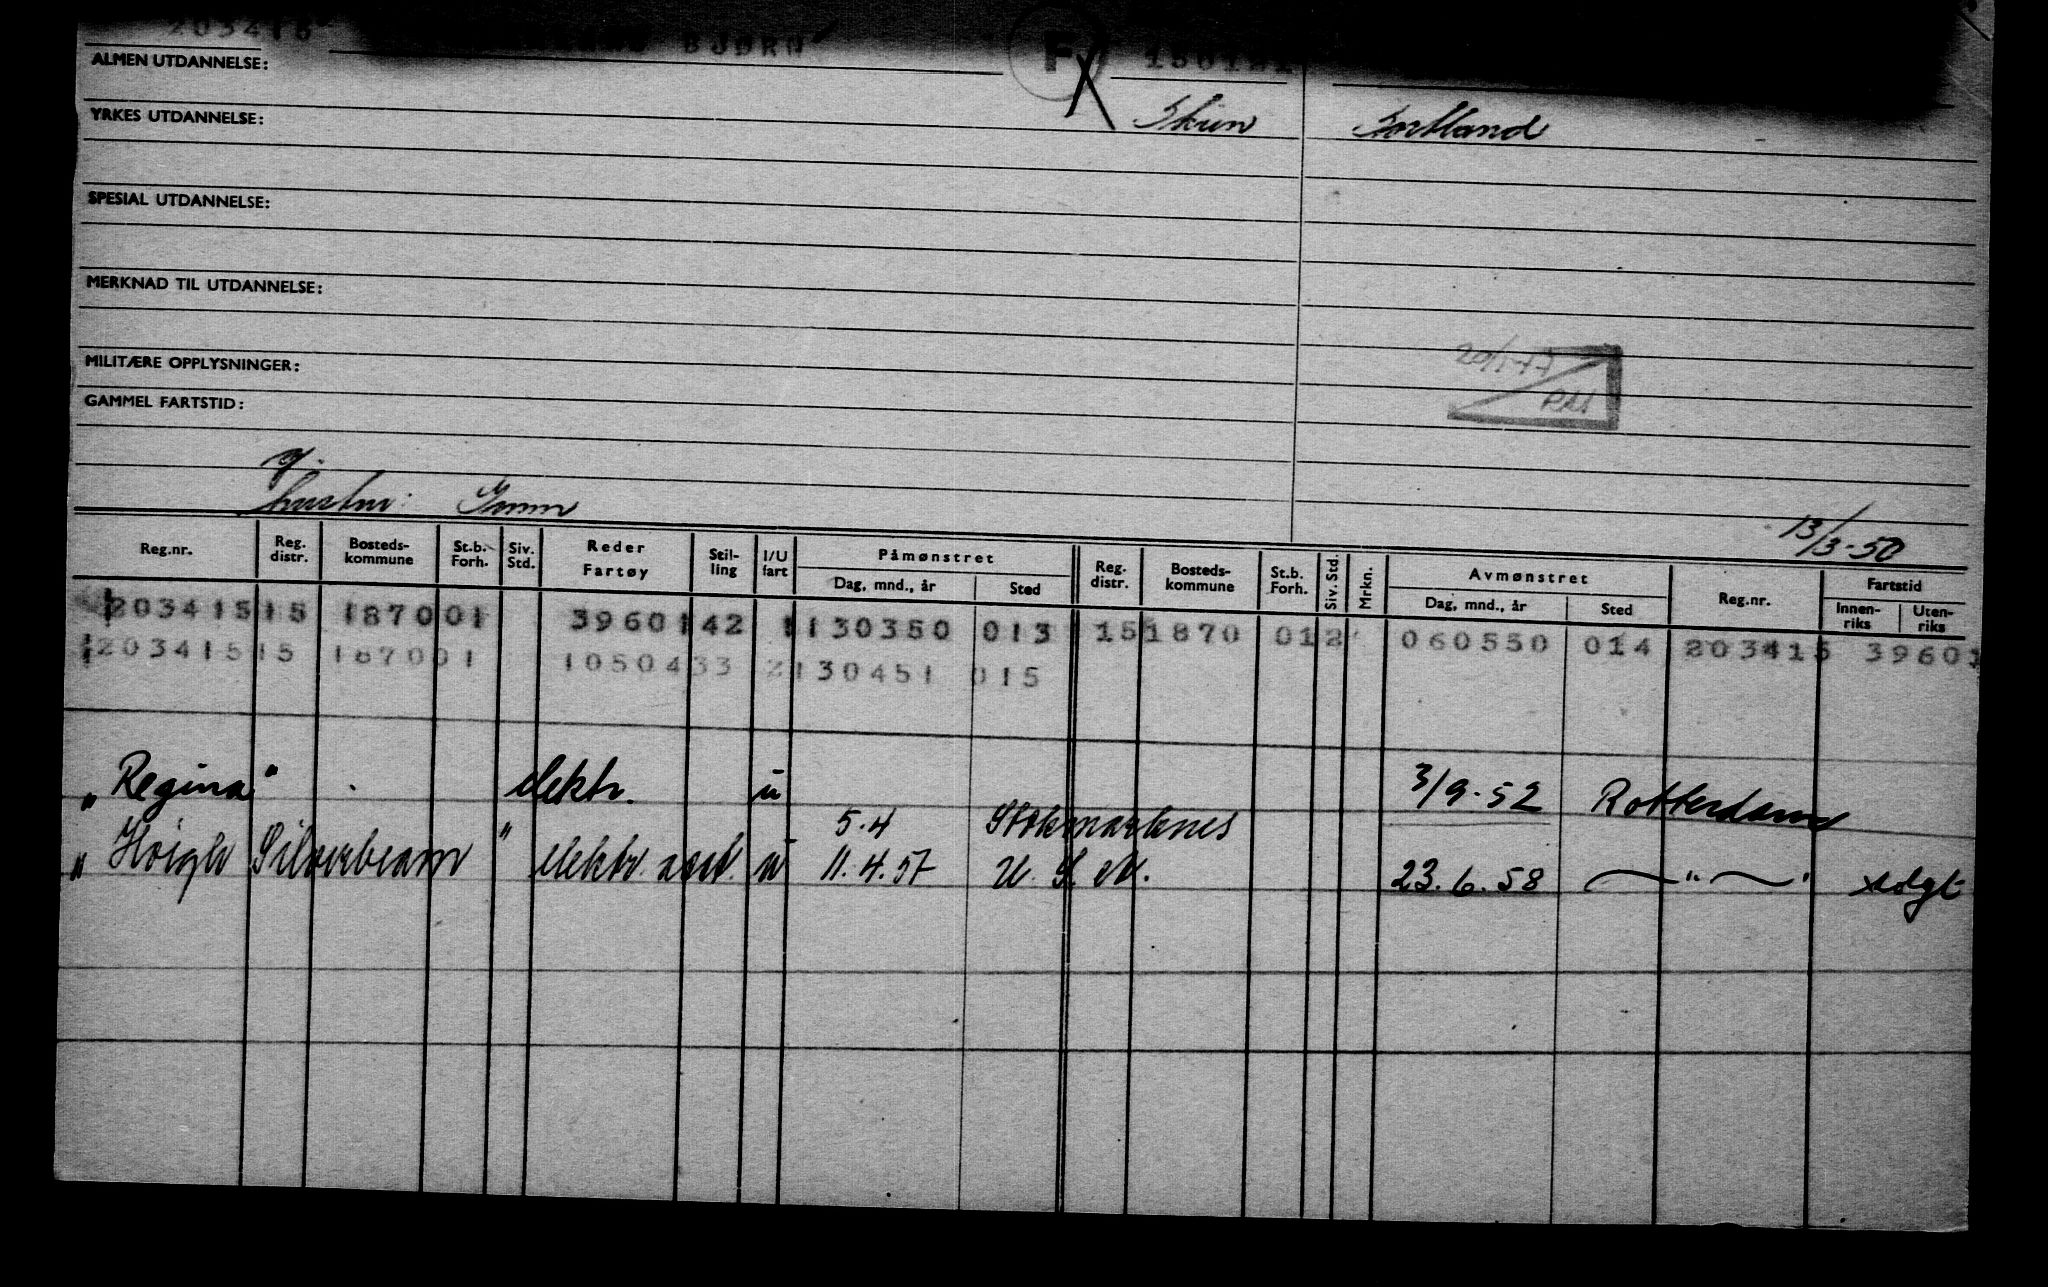 203415 BJØRN F
ALMEN UTDANNELSE:
YRKES UTDANNELSE: Skien
SPESIAL UTDANNELSE:
MERKNAD TIL UTDANNELSE:
MILITÆRE OPPLYSNINGER:
GAMMEL FARTSTID:
13/3-50
Reg.nr. Reg. distr. Bosteds-kommune St.b. Forh. Siv. Std. Reder Fartøy Stil-ling I/U fart Påmønstret Dag, mnd., år Sted Reg. distr. Bosteds-kommune St.b. Forh. Siv. Std. Mrkn. Avmønstret Dag, mnd., år Sted Reg.nr. Fartstid Innen-riks Uten-riks
203415 15 1870 01 39601 42 1 130350 013 15 1870 01 2 060550 014 203415 39601
203415 15 1870 01 10504 33 2 130451 015
„Regina" elektr. u 3/9-52 Rotterdam
5.4 Stokmarknes
„Høigh Silverbeam" elektr. asst. u 11.4.57 U.S.A. 23.6.58 —"— solgt